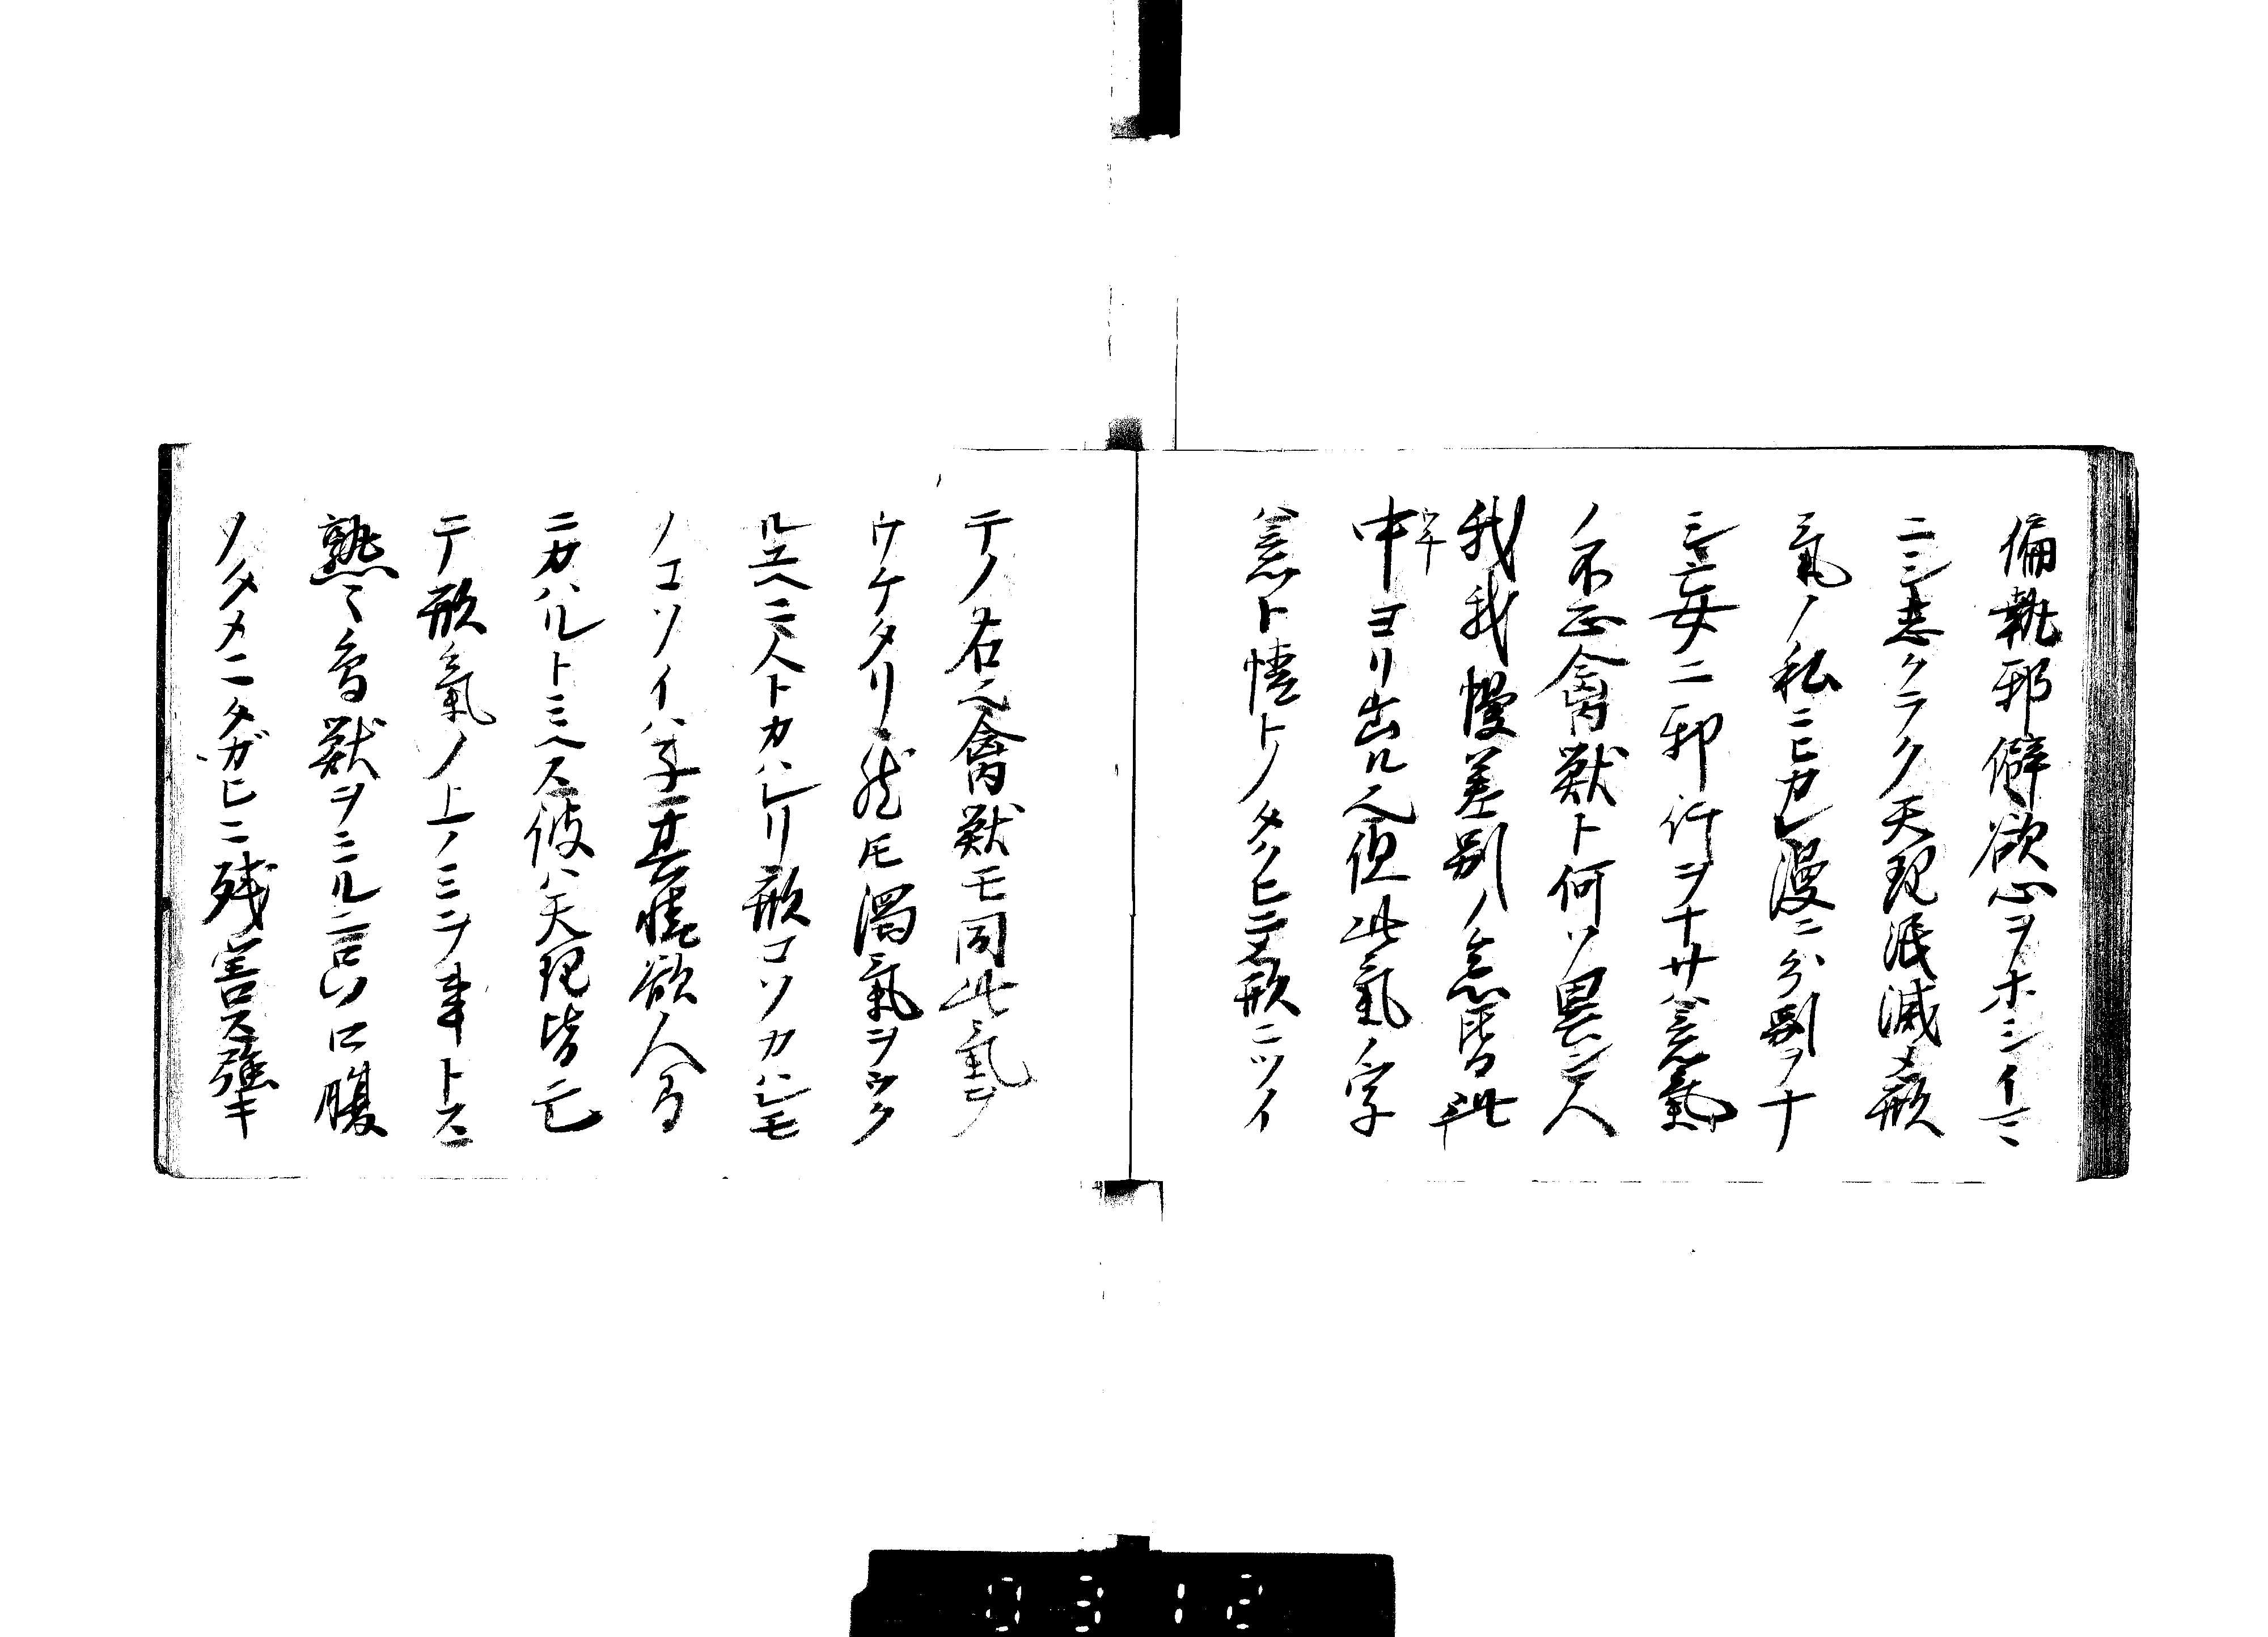 偏執邪僻欲心ヲホシイマヽ
ニシ恚クラク天理泯滅〆形
氣ノ私ニヒカレ漫ニ分別ヲナ
シ妄ニ邪行ヲナサハ意氣
ノ不正禽獣ト何ソ異ン人
我我慢差別ノ念皆此
中ヨリ出ル也但此氣ノ字
字
意ト情トノタクヒニ〆形ニツイ
テノ名也禽獣モ同此氣ヲ
ウケタリ然𪜈濁氣ヲウク
ルユヘニ人トカハレリ形コソカハレモ
ノコソイハ子其情欲人間
ニカハルトミヘス彼ハ天理皆亡
テ形氣ノ上ノミヲ事トス
熟〻鳥獣ヲミルニ只口腹
ノタメニタガヒニ残害ス強キ
0312